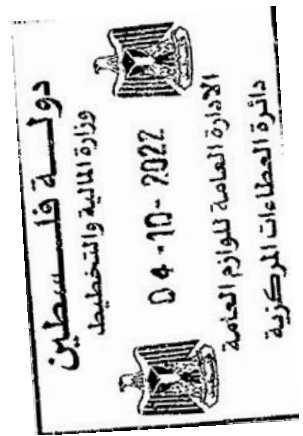 دولـــة فلـــسطين
وزارة المالية والتخطيط
04-10-2022
الادارة العامة للوازم العامة
دائرة العطاءات المركزية